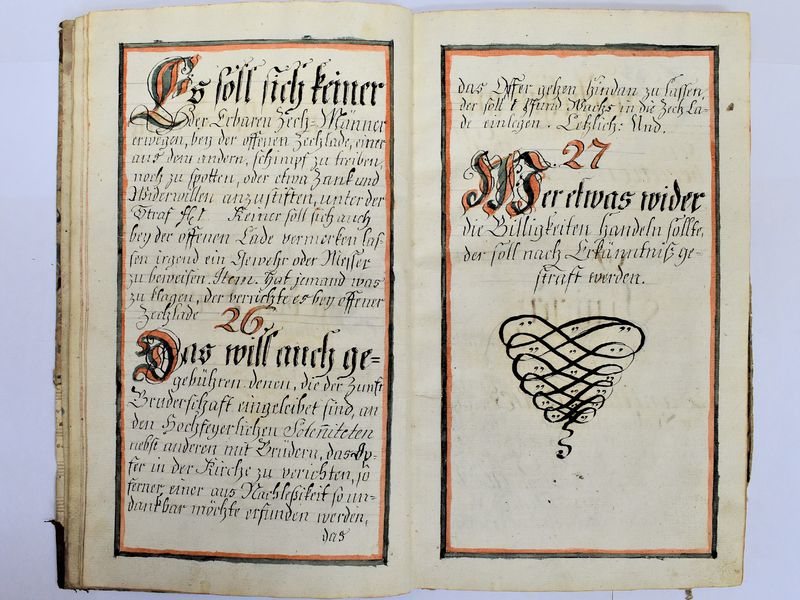 Es soll sich keiner
der Erbaren Zech-Männer
erwegen, bey der offenen Zechlade, einer
aus dem andern, schimpf zu treiben,
noch zu spotten, oder etwa Zank und
Widerwillen anzustiften, unter der
Straf Keiner soll sich auch
bey der offenen Lade vermerken las-
sen irgend ein Gewehr oder Messer
zu beweisen. Item. hat jemand was
zu klagen, der verrichte es bey offener
Zechlade
26.
Das will auch ge-
gebühren denen, die der Zunft
Bruderschaft eingeleibet sind, an
den Hochfeyerlichen Solenniteten
nebst anderen mit Brüdern, das Op-
fer in der Kirche zu verichten, so
ferner einer aus Nachleßikeit so un-
dankbar möchte erfunden werden,
das
das Opfer gehen hindan zu lassen,
der soll 1 Pfund Wachs in die Zech La-
de einlegen. Letzlich: Und.
27
Wer etwas wider
die Billigkeiten handeln sollte,
der soll nach Erkänntniß ge-
straft werden.